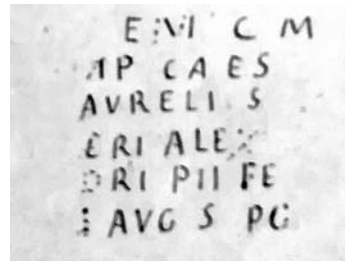 E VI C M
AP CAES
AVRELI S
ERI ALEX
DRI PII FE
I AVG S PC